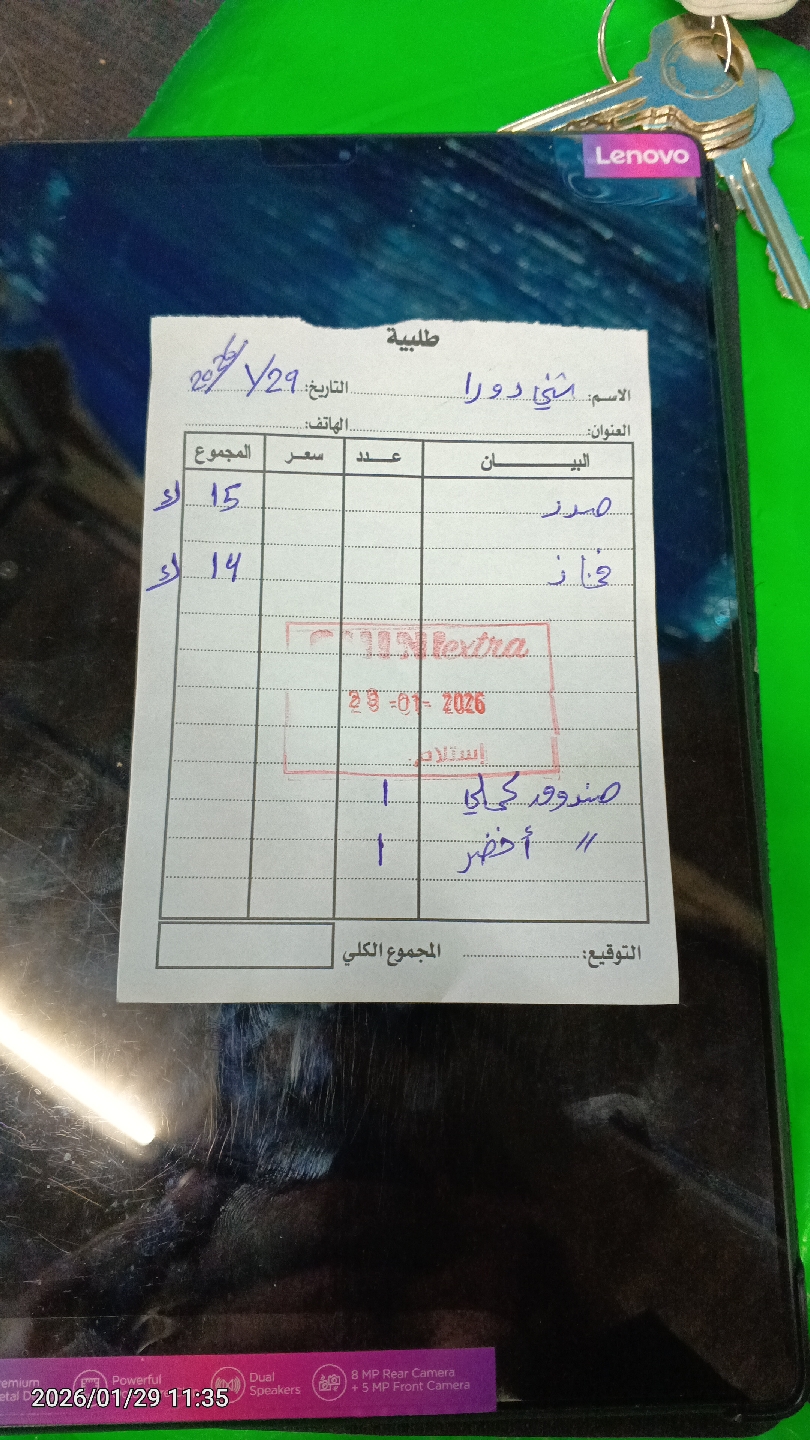 Lenovo
طلبية
الاسم: شني دورا التاريخ: 1/29 2026
العنوان: الهاتف:
البيــــان عــدد سعـر المجموع
صدر 15 ك
فخاذ 14 ك
extra
2026 -01-
إستلام
صندوق كحلي 1
" أخضر 1
التوقيع: المجموع الكلي
Powerful
Dual
Speakers
8 MP Rear Camera
+ 5 MP Front Camera
2026/01/29 11:35